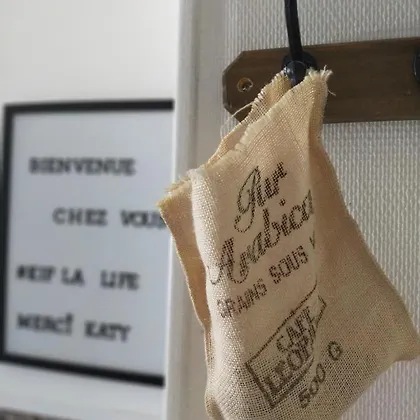 BIENVENUE
CHEZ VOUS
LA LIFE
MERCI KATY
Pur
Arabica
GRAINS SOUS V
CAFE
500 G